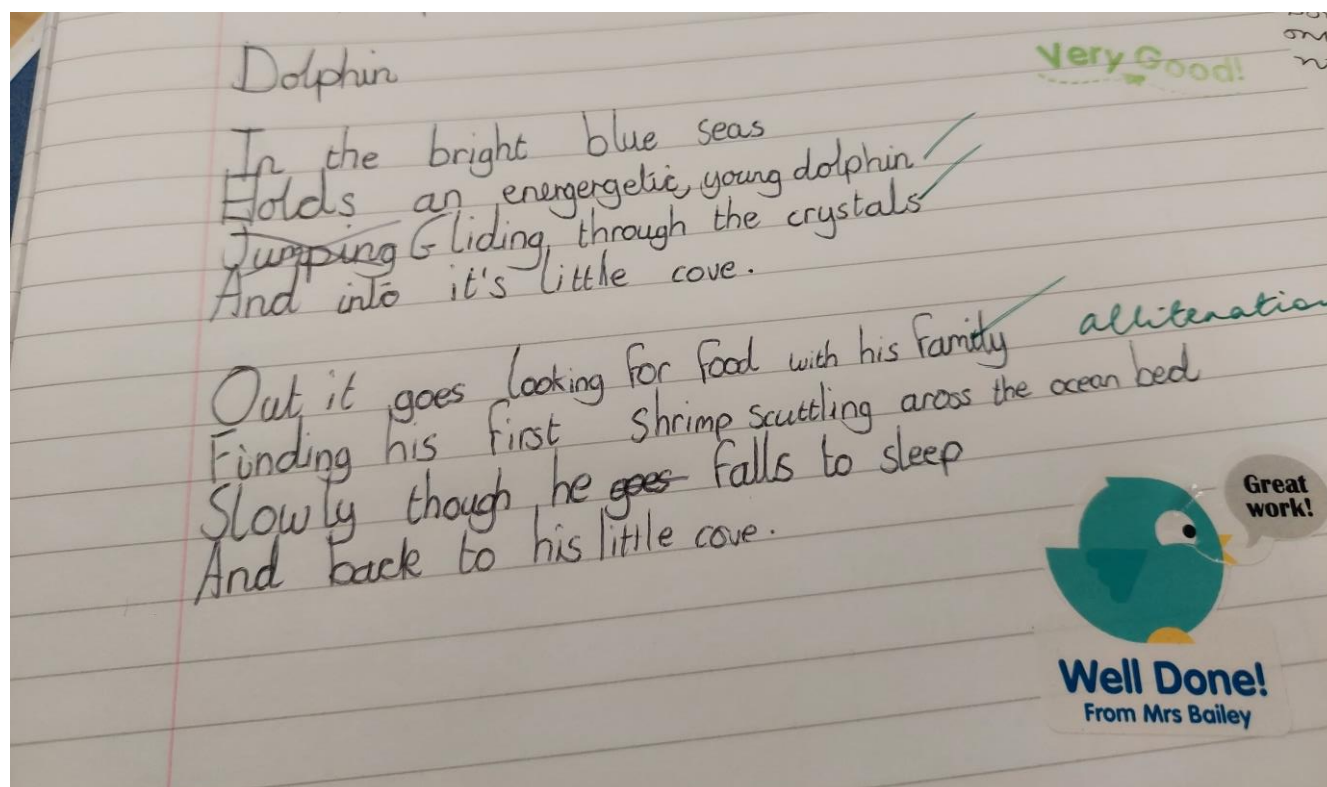 Dolphin
Very Good!
In the bright blue seas
Holds an energergetic, young dolphin
Jumping Gliding, through the crystals
And into it's little cove.
Out it goes looking for food with his family
alliteration
Finding his first shrimp scuttling aross the ocean bed
Slowly though he goes falls to sleep
And back to his little cove.
Great
work!
Well Done!
From Mrs Bailey